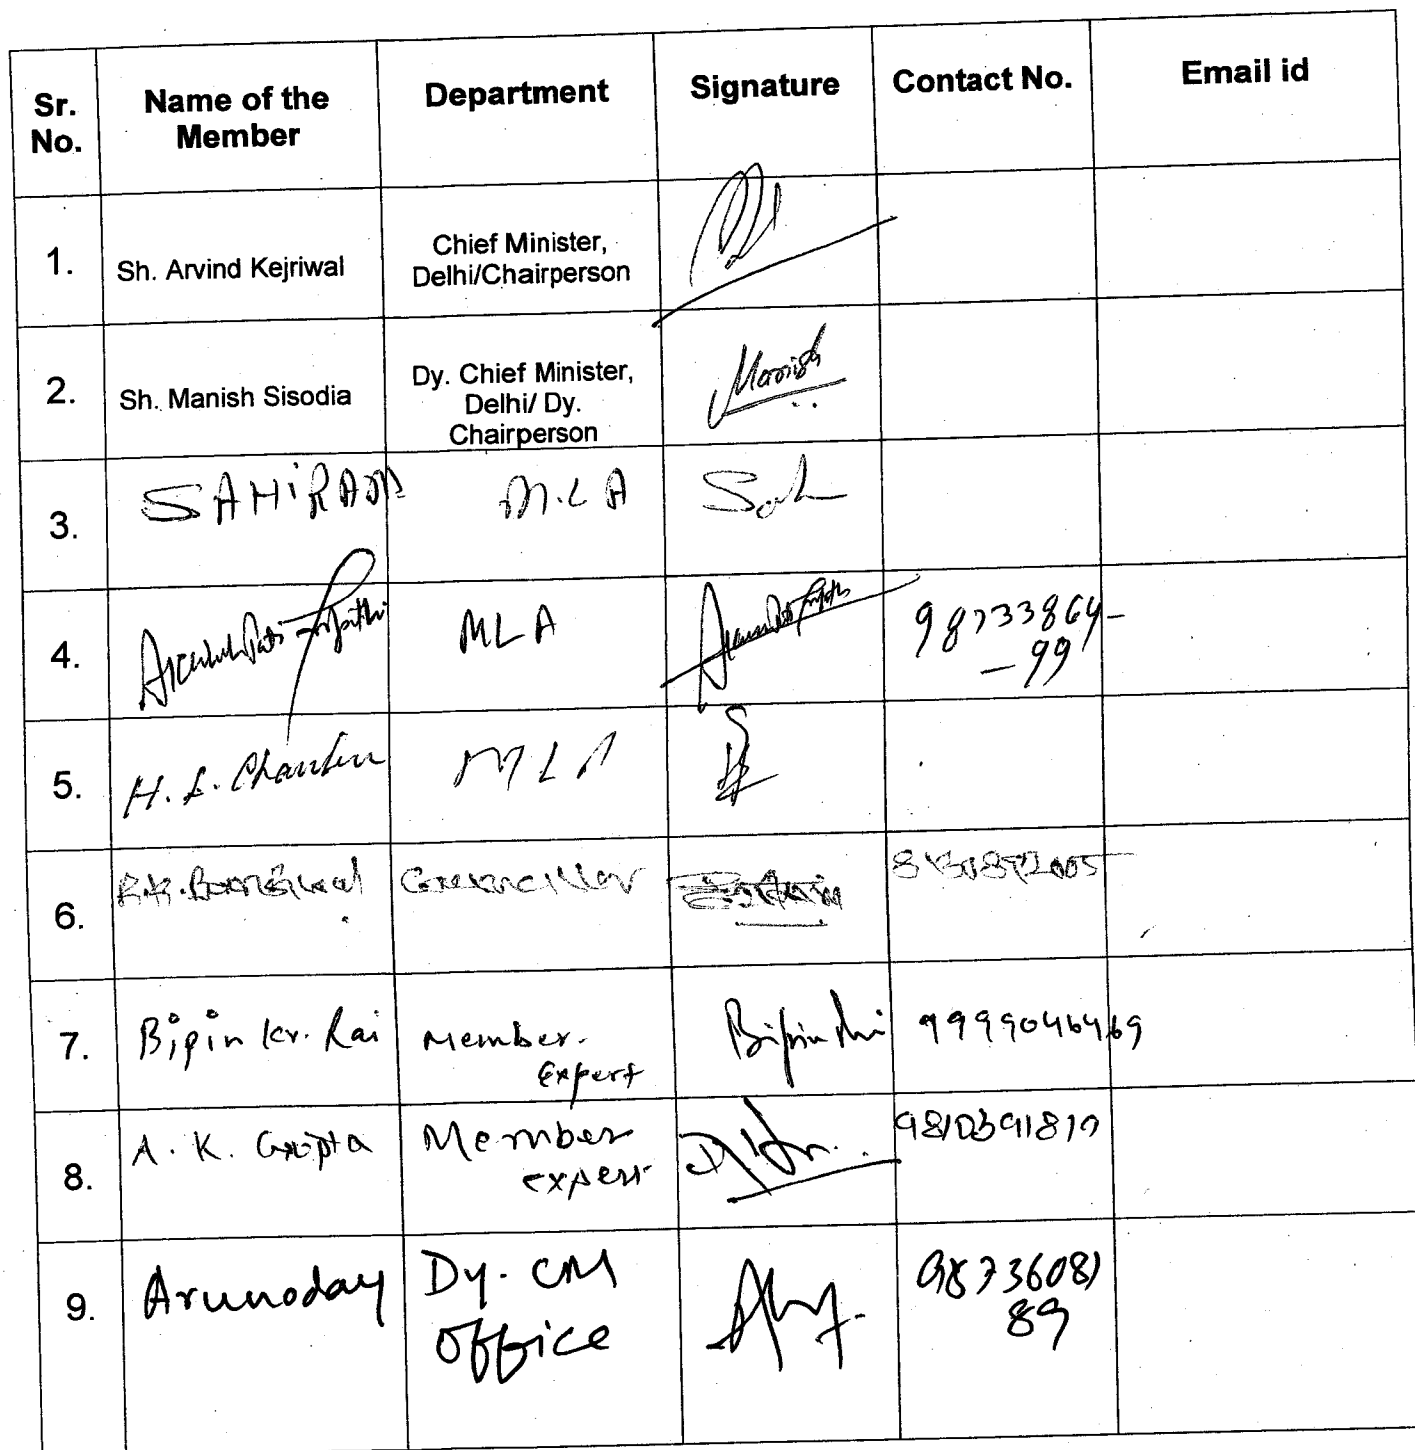 Sr. No. Name of the Member Department Signature Contact No. Email id
1. Sh. Arvind Kejriwal Chief Minister, Delhi/Chairperson
2. Sh. Manish Sisodia Dy. Chief Minister, Delhi/ Dy. Chairperson Manish
3. SAHIRAM M.L A
4. MLA 98733864-
-99
5. H. L. MLA
6. Councillor
7. Bipin Kr. Rai Member. Expert Bipin Rai 9999046469
8. A. K. Gupta Member expert
9. Arunoday Dy. CM office 98736081
89